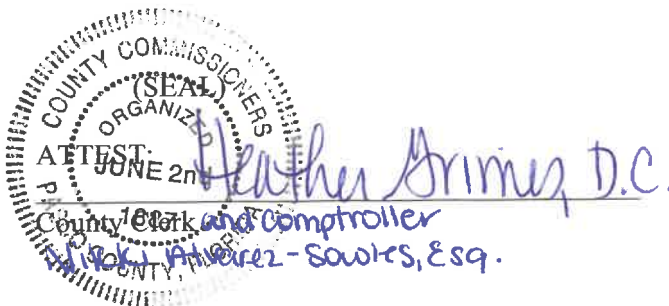 COUNTY COMMISSIONERS
(SEAL)
ORGANIZED
ATTEST: Heather Grimes, D.C.
JUNE 2n
County Clerk and comptroller
1887
Nikki Alvarez-Sowles, Esq.
PASCO COUNTY, FLORIDA